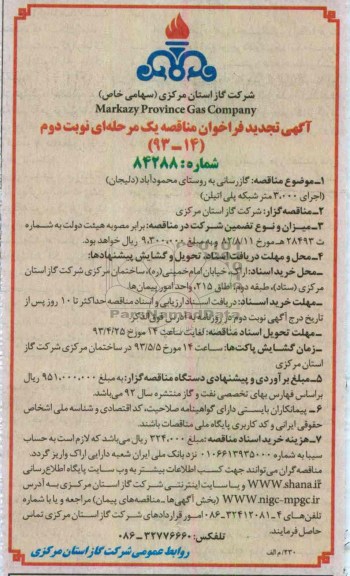 شرکت گاز استان مرکزی (سهامی خاص)
Markazy Province Gas Company
آگهی تجدید فراخوان مناقصه یک مرحله‌ای نوبت دوم
(۱۴-۹۳)
شماره: ۸۴۲۸۸
۱-موضوع مناقصه: گازرسانی به روستای محمودآباد (دلیجان)
(اجرای ۳,۰۰۰ متر شبکه پلی اتیلن)
۲-مناقصه‌گزار: شرکت گاز استان مرکزی
۳-میزان و نوع تضمین شرکت در مناقصه: برابر مصوبه هیئت دولت به شماره
ت ۲۸۴۹۳ هـ مورخ ۸۲/۸/۱۱ و به مبلغ ۹,۳۰۰,۰۰۰ ریال خواهد بود.
۴-محل و مهلت دریافت اسناد، تحویل و گشایش پیشنهادها:
-محل خرید اسناد: اراک، خیابان امام خمینی(ره)، ساختمان مرکزی شرکت گاز استان
مرکزی (ستاد)، طبقه دوم، اطاق ۲۱۵، واحد امور پیمان‌ها.
-مهلت خرید اسناد: دریافت اسناد ارزیابی و اسناد مناقصه حداکثر تا ۱۰ روز پس از
تاریخ درج آگهی نوبت دوم در روزنامه به آدرس فوق الذکر
-مهلت تحویل اسناد مناقصه: لغایت ساعت ۱۴ مورخ ۹۳/۴/۲۵
-زمان گشایش پاکت‌ها: ساعت ۱۴ مورخ ۹۳/۵/۵ در ساختمان مرکزی شرکت گاز
استان مرکزی
۵-مبلغ برآوردی و پیشنهادی دستگاه مناقصه‌گزار: به مبلغ ۹۵۱,۰۰۰,۰۰۰ ریال
براساس فهارس بهای تخصصی نفت و گاز منتشره سال ۹۲ می‌باشد.
۶-پیمانکاران بایستی دارای گواهینامه صلاحیت، کد اقتصادی و شناسه ملی اشخاص
حقوقی ایرانی و کد کاربری پایگاه ملی مناقصات باشند.
۷-هزینه خرید اسناد مناقصه: مبلغ ۳۲۴,۰۰۰ ریال می‌باشد که لازم است به حساب
سیبا به شماره ۰۱۰۶۶۱۳۹۳۵۰۰۰ نزد بانک ملی ایران شعبه دارایی اراک واریز گردد.
مناقصه گران می‌توانند جهت کسب اطلاعات بیشتر به وب سایت پایگاه اطلاع رسانی
WWW.shana.ir و یا سایت اینترنتی شرکت گاز استان مرکزی به آدرس
WWW.nigc-mpgc.ir (بخش آگهی‌ها-مناقصه‌های پیمان) مراجعه و یا با شماره
تلفن‌های ۴-۳۲۴۱۲۰۸۱-۰۸۶ امور قراردادهای شرکت گاز استان مرکزی تماس
حاصل فرمایند.
تلفکس: ۳۲۷۷۶۶۶۰-۰۸۶
روابط عمومی شرکت گاز استان مرکزی
۲۳۰/م الف